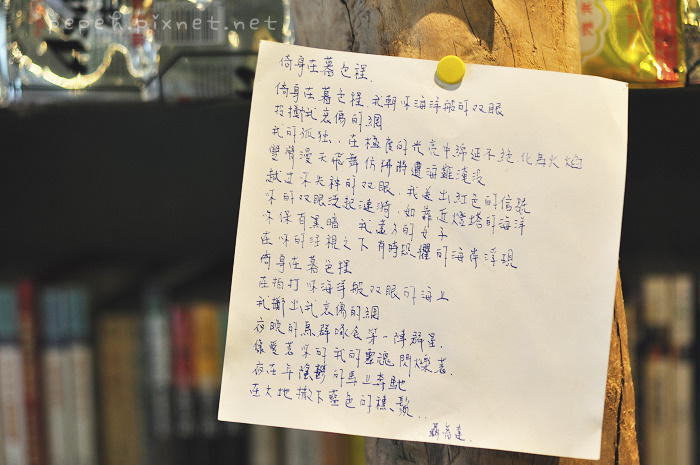 pepeh.pixnet.net
倚身在暮色裡
倚身在暮色裡,我朝你海洋般的双眼
投擲我哀傷的網
我的孤独,在極度的光亮中綿延不絕,化為火焰
雙臂漫天飛舞仿彿將遭海難淹没
越过你失神的双眼,我送出红色的信號
你的双眼泛起漣漪,如靠近燈塔的海洋
你保有黑暗 我遠方的女子
在你的注視之下有時恐懼的海岸浮現
倚身在暮色裡
在拍打你海洋般双眼的海上
我擲出我哀傷的網
夜晚的鳥群啄食第一陣群星
像愛著你的我的靈魂,閃爍著.
夜在年陰鬱的馬上奔馳
在大地撒下藍色的穗鬚...
聶魯達